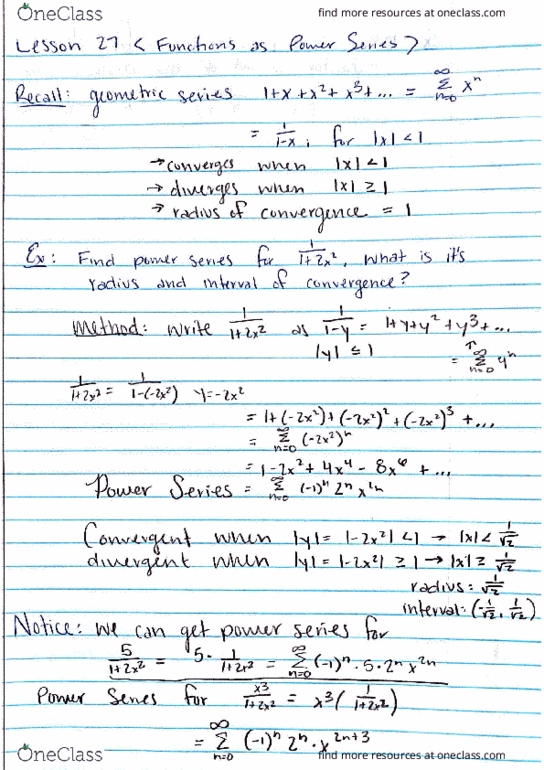 OneClass find more resources at oneclass.com
Lesson 27 < Functions as Power Series >
Recall: geometric series 1+x+x²+x³+... = ∞Σn=0 xⁿ
= 1/1-x, for |x|<1
→converges when |x|<1
→ diverges when |x|≥1
→ radius of convergence = 1
Ex: Find power series for 1/1+2x², what is it's
radius and interval of convergence?
Method: write 1/1+2x² as 1/1-y = 1+y+y²+y³+...
|y| ≤ 1
= ∞Σn=0 yⁿ
1/1+2x² = 1/1-(-2x²) y=-2x²
= 1+(-2x²)+(-2x²)²+(-2x²)³+...
= ∞Σn=0 (-2x²)ⁿ
= 1-2x²+4x⁴-8x⁶+...
Power Series = ∞Σn=0 (-1)ⁿ 2ⁿ x²ⁿ
Convergent when |y|=|-2x²|<1 → |x|<1/√2
divergent when |y|=|-2x²|≥1 → |x|≥1/√2
radius: 1/√2
interval: (-1/√2, 1/√2)
Notice: we can get power series for
5/1+2x² = 5·1/1+2x² = ∞Σn=0 (-1)ⁿ·5·2ⁿ x²ⁿ
Power Series for x³/1+2x² = x³(1/1+2x²)
= ∞Σn=0 (-1)ⁿ 2ⁿ·x²ⁿ⁺³
OneClass find more resources at oneclass.com